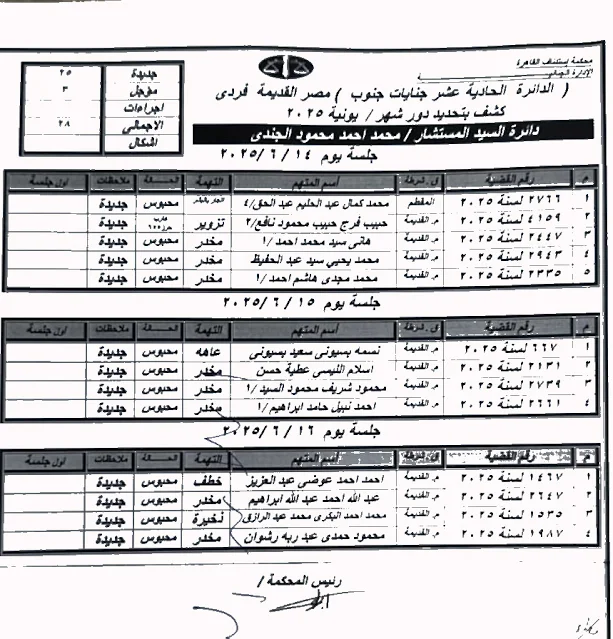 محكمة إستئناف القاهرة
الإدارة الجنائية
( الدائرة الحادية عشر جنايات جنوب ) مصر القديمة فردى
كشف بتحديد دور شهر / يونية ٢٠٢٥
دائرة السيد المستشار / محمد احمد محمود الجندى
جديدة ٢٥
مؤجل ٣
اجراءات
الاجمالى ٢٨
اشكال
جلسة يوم ١٤ / ٦ / ٢٠٢٥
م رقم القضية ق. شرطة أسم المتهم التهمة الحــالة ملاحظات اول جلسة
١ ٢٧٦٦ لسنة ٢٠٢٥ المقطم محمد كمال عبد الحليم عبد الحق/٤ محبوس جديدة
٢ ٤١٥٩ لسنة ٢٠٢٥ م. القديمة حبيب فرج حبيب محمود نافع/٢ تزوير جديدة
٣ ٢٤٤٧ لسنة ٢٠٢٥ م. القديمة هانى سيد محمد احمد /١ مخدر محبوس جديدة
٤ ٢٩٤٣ لسنة ٢٠٢٥ م. القديمة محمد يحيي سيد عبد الحفيظ مخدر محبوس جديدة
٥ ٢٣٣٥ لسنة ٢٠٢٥ م. القديمة محمد مجدى هاشم احمد /١ مخدر محبوس جديدة
جلسة يوم ١٥ / ٦ / ٢٠٢٥
م رقم القضية ق. شرطة أسم المتهم التهمة الحــالة ملاحظات اول جلسة
١ ٦٦٧ لسنة ٢٠٢٥ م. القديمة نسمه بسيونى سعيد بسيونى عاهه محبوس جديدة
٢ ٢١٣١ لسنة ٢٠٢٥ م. القديمة اسلام الليسى عطية حسن مخدر محبوس جديدة
٣ ٢٧٣٩ لسنة ٢٠٢٥ م. القديمة محمود شريف محمود السيد /١ مخدر محبوس جديدة
٤ ٢٦٦١ لسنة ٢٠٢٥ م. القديمة احمد نبيل حامد ابراهيم /١ مخدر محبوس جديدة
جلسة يوم ١٦ / ٦ / ٢٠٢٥
م رقم القضية ق. شرطة أسم المتهم التهمة الحــالة ملاحظات اول جلسة
١ ١٤٦٧ لسنة ٢٠٢٥ م. القديمة احمد احمد عوضى عبد العزيز خطف محبوس جديدة
٢ ٢٦٤٧ لسنة ٢٠٢٥ م. القديمة عبد الله احمد عبد الله ابراهيم مخدر محبوس جديدة
٣ ١٥٣٥ لسنة ٢٠٢٥ م. القديمة محمد احمد البكرى محمد عبد الرازق ذخيرة محبوس جديدة
٤ ١٩٨٧ لسنة ٢٠٢٥ م. القديمة محمود حمدى عبد ربه رشوان مخدر محبوس جديدة
رئيس المحكمة /